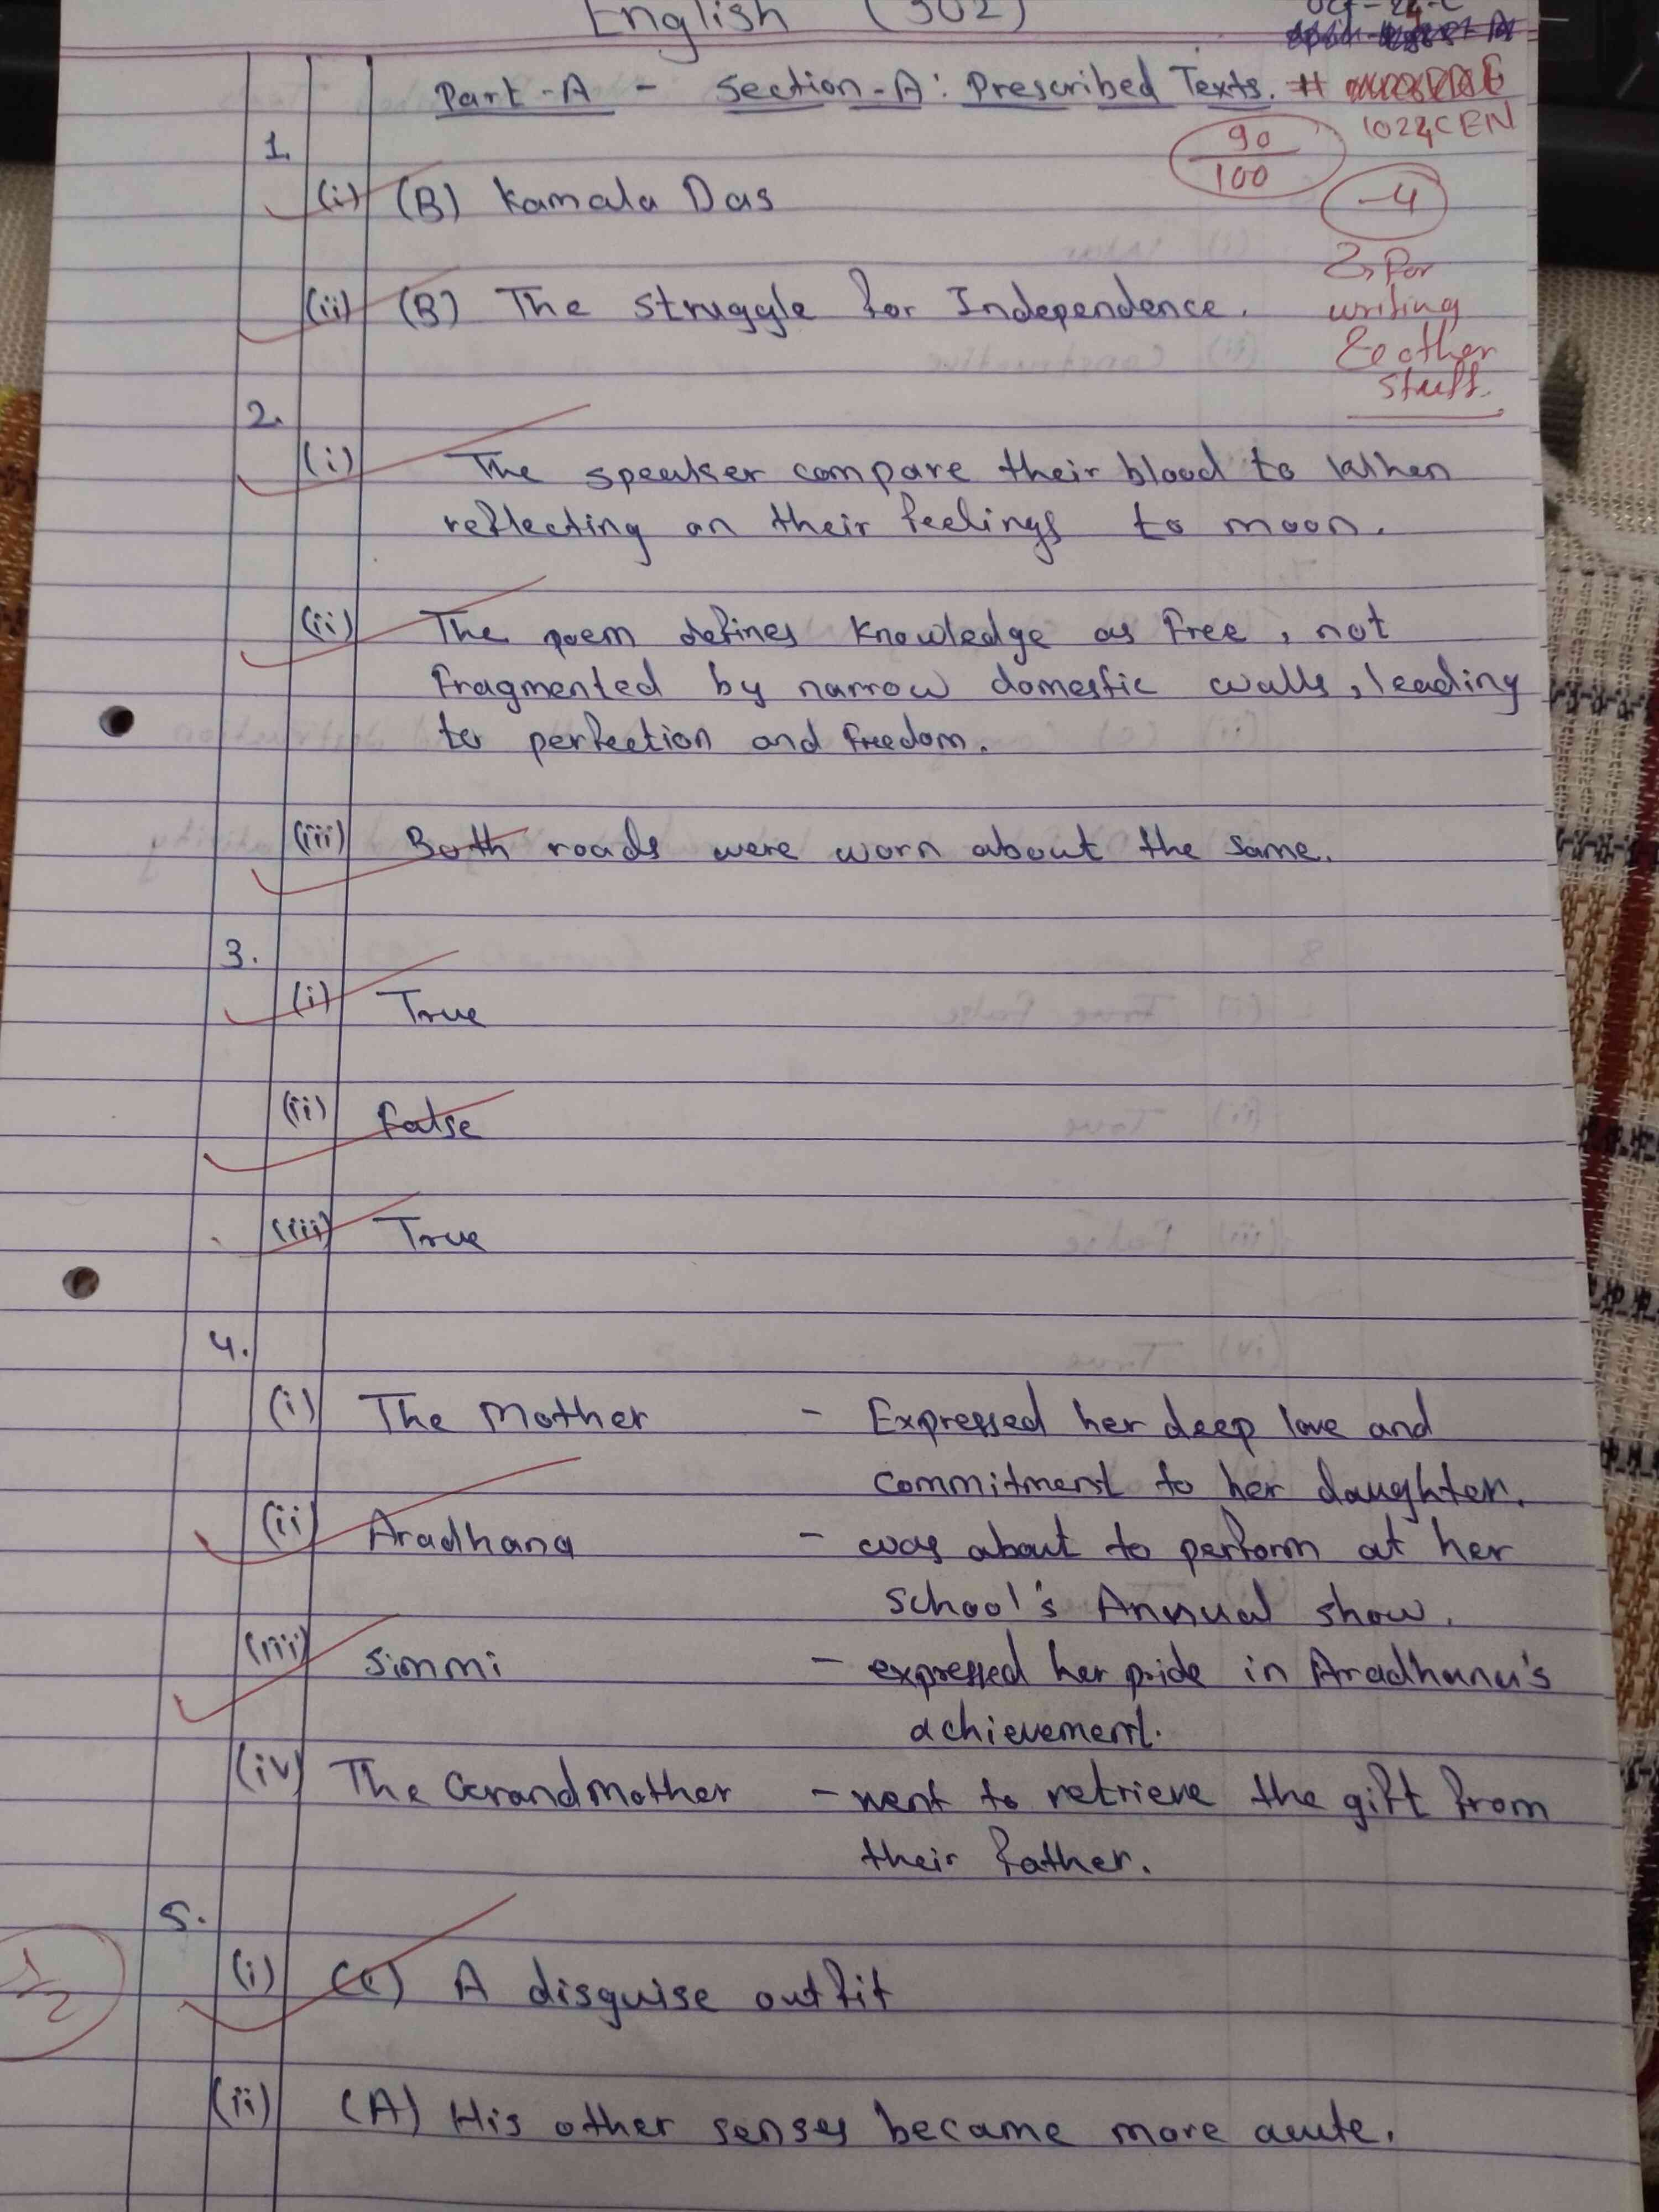 English (302)
Oct - 24 - C
Part - A - Section - A : Prescribed Texts. #
1024CEN
90
100
-4
1.
(i) (B) Kamala Das
(ii) (B) The struggle for Independence.
→ for
writing
& other
stuff.
2.
(i) The speaker compare their blood to When
reflecting on their feelings to moon.
(ii) The poem defines knowledge as free, not
fragmented by narrow domestic walls, leading
to perfection and freedom.
(iii) Both roads were worn about the same.
3.
(i) True
(ii) False
(iii) True
4.
(i) The Mother - Expressed her deep love and
commitment to her daughter.
(ii) Aradhana - was about to perform at her
school's Annual show.
(iii) Simmi - expressed her pride in Aradhana's
achievement.
(iv) The Grandmother - went to retrieve the gift from
their father.
5.
(i) (C) A disguise outfit
1/2
(ii) (A) His other senses became more acute.